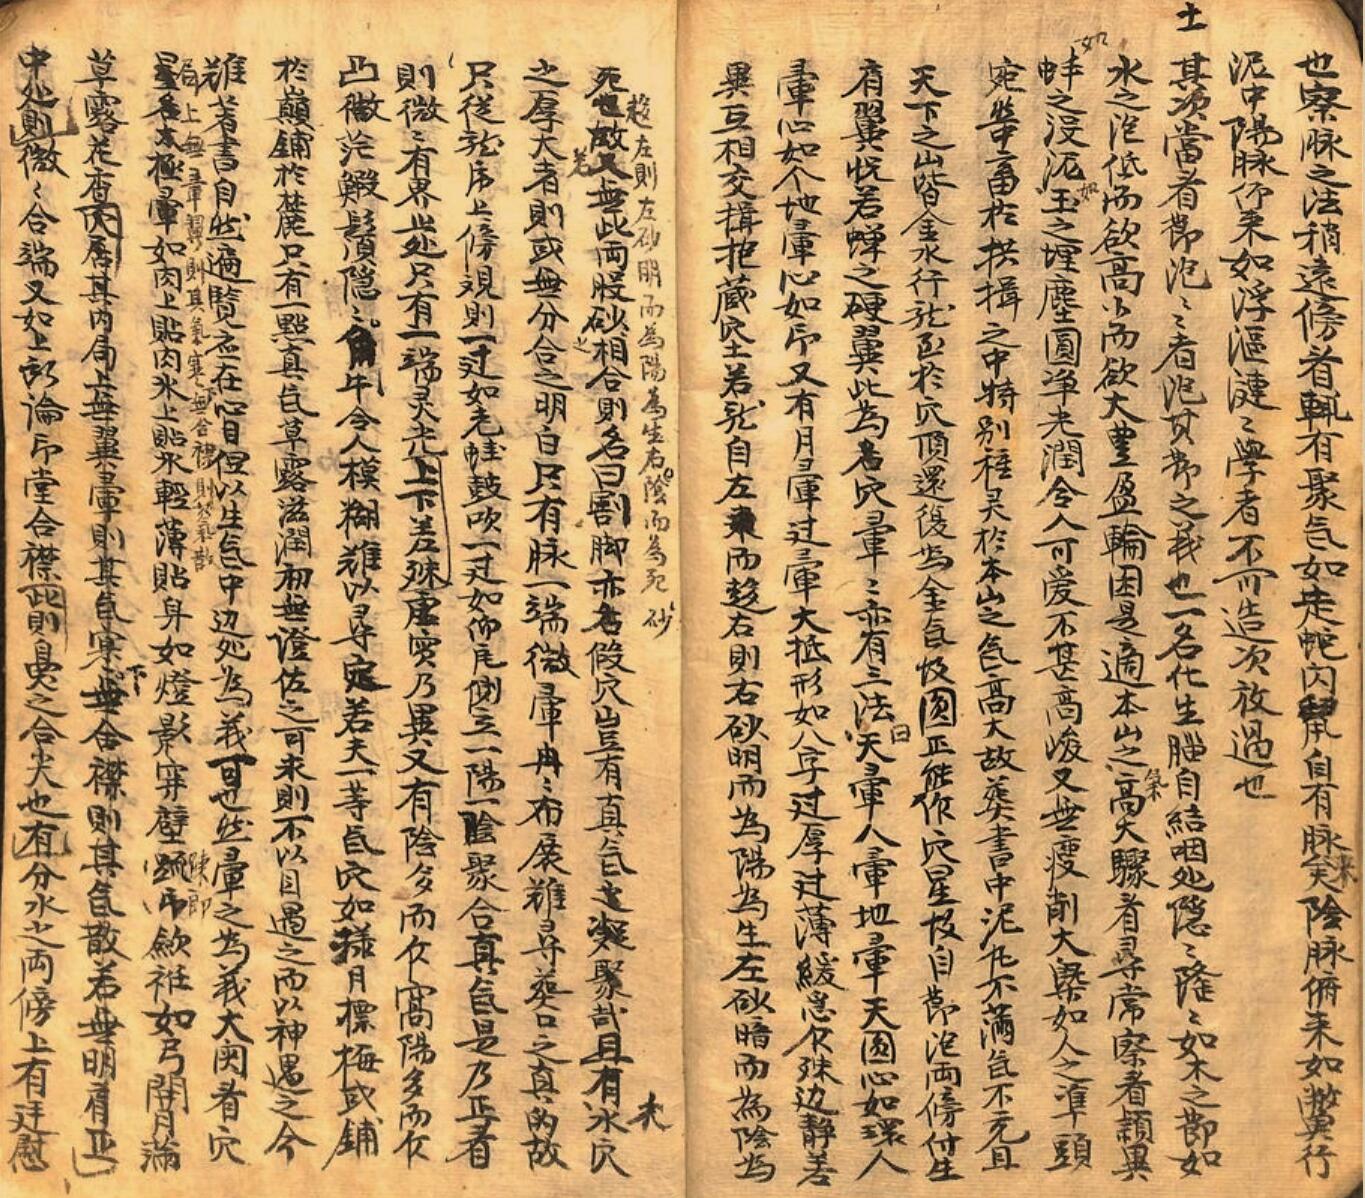 士
也察脉之法稍遠傍看輒有聚气如走蛇闪鼠自有脉来矣陰脉俯来如撇翼行
泥中陽脉仰来如浮漚漣〻學者不可造次放過也
其次當看節泡〻者泡其節之義也一名化生腦自結咽処隐〻隆〻如木之節如
水之泡低而欲高小而欲大豊盈輪囷是適本山之气高大驟看尋常察看頴異
如蚌之没泥如玉之埋塵圓净光潤令人可爱不甚高峻又無瘦削大槩如人之準頭
宛然中畜於拱揖之中特别種灵於本山之气高大故葵書中泥丸不滿气不充且
天下之山皆金水行龙至於穴頂還復為金气恆圆正能作穴星恆自節泡両傍付生
有翼恍若蟬之硬翼此為名穴暈〻亦有三法曰天暈人暈地暈天圆心如環人
暈心如个地暈心如印又有月暈过暈大抵形如八字过厚过薄緩急仄殊边静若
異互相交揖抱蔵穴土若龙自左来而趍右則右砂明而為陽為生左砂暗而為陰為
趍左則左砂明而為陽為生右陰而為死砂
死也故又若無此両股砂相合則名曰割脚亦名假穴豈有真气之凝聚哉且有氷穴
之厚大者則或無分合之明白只有脉一端微暈冉〻布展難寻葵口之真的故
只従龙序上傍視則一边如老蛙鼓吹一边如仰瓦側立一陽一陰聚合真气是乃正者
則微〻有界此处只有一端灵光上下差殊虚实乃異又有陰多而仄窩陽多而仄
凸微茫鰕鬚隐〻角牛令人模糊難以寻定若夫一等气穴如禄月標梅或鋪
於巔鋪於麓只有一點真气草露滋潤初無證佐之可求則不以目遇之而以神遇之今
雖著書自然遍覽不在心目但以生气中边处為義可也然暈之為義大奥看穴
局上無暈翼則其气寒〻無合襟則其气散
星名太極暈如肉上貼肉氷上貼氷輕薄貼身如燈影穿壁疏帘歛袵如弓開月滿
草露花香内局其内局上無翼暈則其气寒下無合襟則其气散若無明肩正
中処則微〻合端又如上部論印堂合襟此則臭之合尖也有分水之両傍上有廷慰